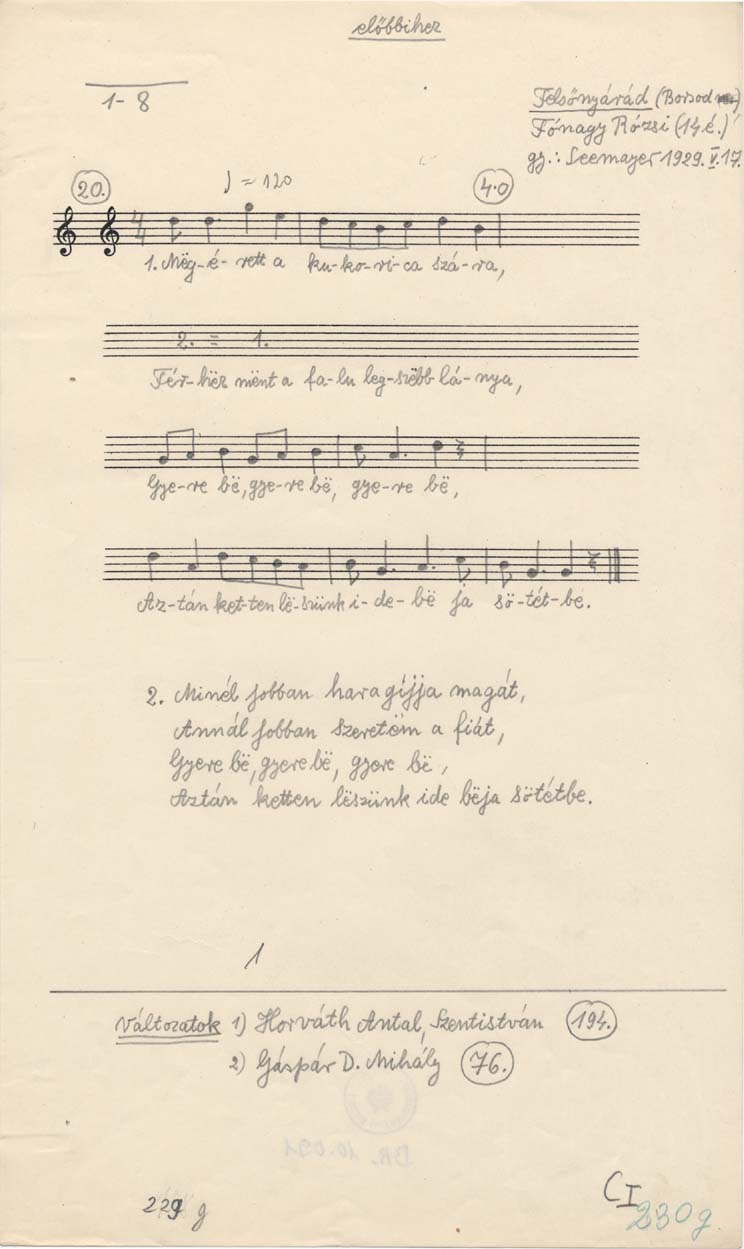 előbbihez
1-8
Felsőnyárád (Borsod
Fónagy Rózsi (14 é.)
gy.: Seemayer 1929. V. 17.
20.
♩ = 120
4.0
4/4
1. Mëg-é-rett a ku-ko-ri-ca szá-ra,
2. = 1.
Fér-hëz mënt a fa-lu leg-szëbb lá-nya,
Gye-re bë, gye-re bë, gye-re bë,
Az-tán ket-ten lë-szünk i-de-bë ja sö-tét-be.
2. Minél jobban haragíjja magát,
Annál jobban szeretëm a fiát,
Gyere bë, gyere bë, gyere bë,
Aztán ketten lëszünk ide bëja sötétbe.
1
Változatok 1) Horváth Antal, Szentistván 194.
2) Gáspár D. Mihály 76.
BR. 10.091
229 g
CI
230g